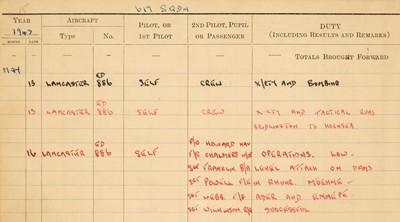 617 SQDN
YEAR AIRCRAFT PILOT, OR 2ND PILOT, PUPIL DUTY
1943 1ST PILOT OR PASSENGER (INCLUDING RESULTS AND REMARKS)
MONTH DATE Type No.
— — — — — — TOTALS BROUGHT FORWARD
MAY
13 LANCASTER ED 886 SELF CREW X/CTY AND BOMBING
15 LANCASTER ED 886 SELF CREW X-CTY AND TACTICAL
TO
F/O HOWARD NAV
16 LANCASTER ED 886 SELF F/S CHALMERS OPERATIONS. LOW-
SGT FRANKLIN B/A LEVEL ATTACK ON DAMS
SGT POWELL F/E IN RHUHR. MOEHNE-
SGT WEBB F/G ADER AND ENNEPE
SGT WILKINSON R/G SUCCESSFUL